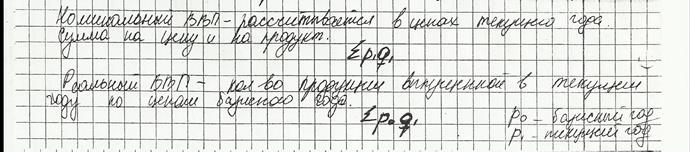 Номинальный ВВП - рассчитывается в ценах текущего года.
Сумма на цену и на продукт.
Σp₁q₁
Реальный ВВП - кол-во продукции выпущенной в текущем
году по ценам базисного года.
Σp₀q₁
p₀ - базисный год
p₁ - текущий год